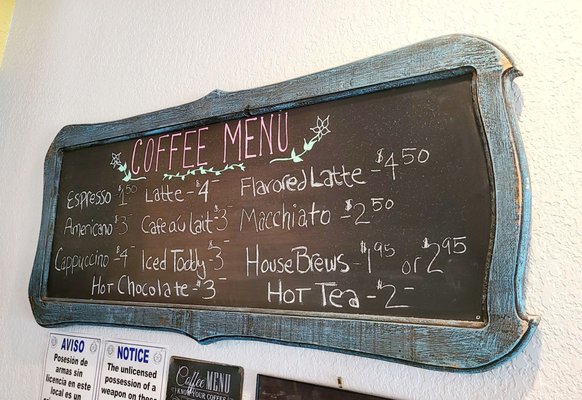 COFFEE MENU
Espresso $1.50 Latte - $4- Flavored Latte - $4.50
Americano $3- Cafe au Lait - $3- Macchiato - $2.50
Cappuccino - $4- Iced Toddy - $3- House Brews - $1.95 or $2.95
Hot Chocolate - $3- Hot Tea - $2-
AVISO
Posesión de
armas sin
licencia en
este local es
un
NOTICE
The unlicensed
possession of a
weapon on these
Coffee MENU
KNOW YOUR COFFEE